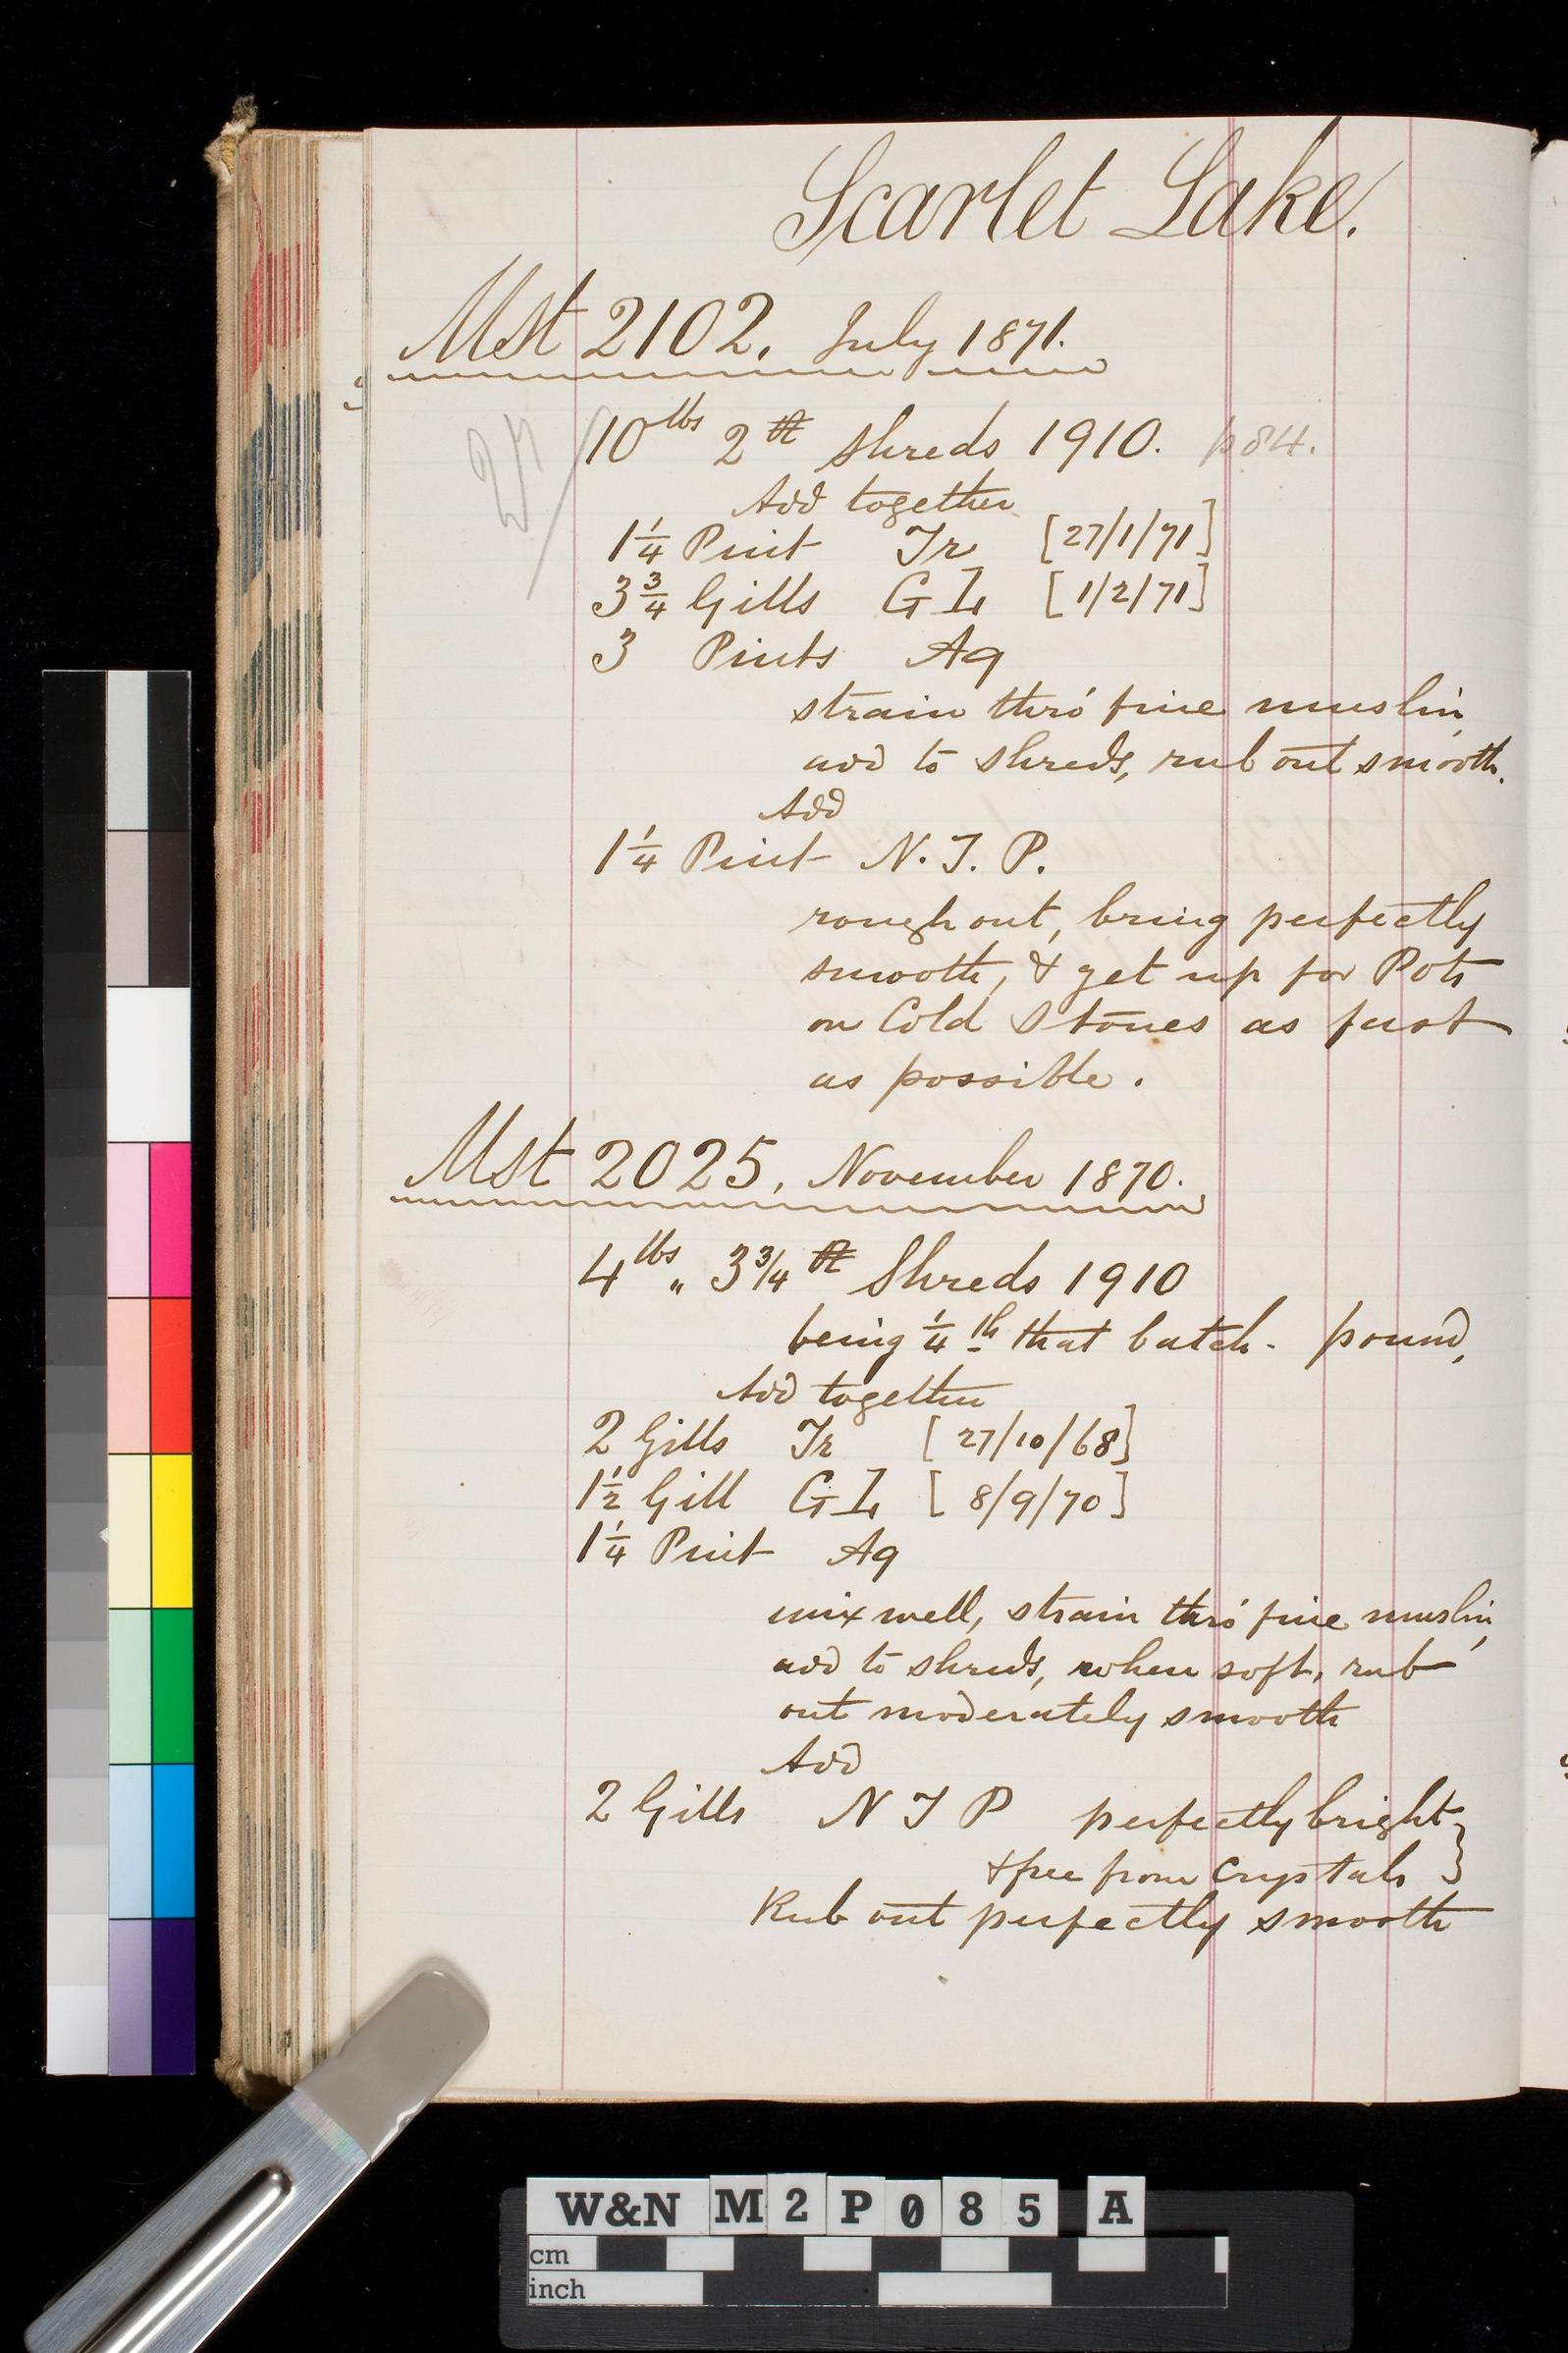 Scarlet Lake.
Mst 2102. July 1871.
27
10 lbs 2 shreds 1910. p84.
Add together
1 1/4 Pint Tr [27/1/71]
3 3/4 Gills G L [1/2/71]
3 Pints Aq
strain thro' fine muslin,
add to shreds, rub out smooth.
Add
1 1/4 Pint N. T. P.
rough out, bring perfectly
smooth, & get up for Pots
on Cold Stones as fast
as possible.
Mst 2025, November 1870.
4 lbs „ 3 3/4 Shreds 1910
being 1/4 th that batch - pound,
Add together
2 Gills Tr [27/10/68]
1 1/2 Gill G L [8/9/70]
1 1/4 Pint Aq
mix well, strain thro' fine muslin,
add to shreds, when soft, rub
out moderately smooth
Add
2 Gills N T P perfectly bright
& free from Crystals
Rub out perfectly smooth
W&N M2P085 A
cm
inch